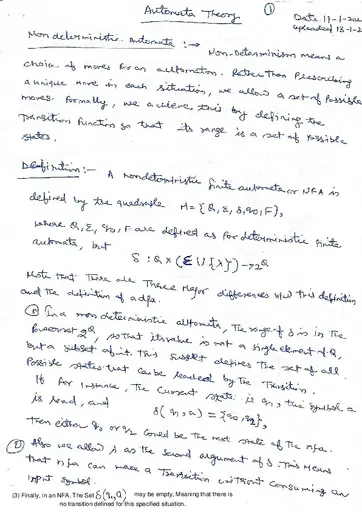 Automata Theory
①
Date 17-1-202
uploaded 18-1-2
Non deterministic Automata :→ Non-Determinism means a
choice of moves for an automaton. Rather than Prescribing
a unique move in each situation, we allow a set of Possible
moves. Formally, we achieve this by defining the
transition function so that its range is a set of Possible
states.
Definition:- A nondeterministic finite automata or NFA is
defined by the quadruple M = {Q, Σ, δ, q0, F},
where Q, Σ, q0, F are defined as for deterministic finite
automata, but
δ : Q × (Σ ∪ {λ}) → 2^Q
Note that There are Three Major differences b/w this definition
and the definition of a dfa.
① In a non deterministic automata, The range of δ is in the
Powerset 2^Q, so that its value is not a single element of Q,
but a subset of it. This subset defines the set of all
Possible states that can be reached by the Transition.
If For Instance, The current state is q1, the symbol a
is read, and
δ(q1, a) = {q0, q2},
Then either q0 or q2 could be the next state of the nfa.
② Also we allow λ as the second argument of δ. This Means
that nfa can make a Transition without consuming an
input symbol.
(3) Finally, in an NFA, The Set δ(q1, a) may be empty, Meaning that there is
no transition defined for this specified situation.